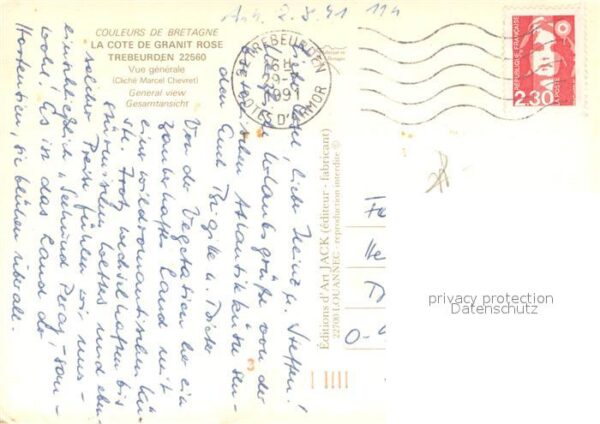 Ank. 2.8.91 114
COULEURS DE BRETAGNE
LA COTE DE GRANIT ROSE
TREBEURDEN 22560
Vue générale
(Cliché Marcel Chevret)
General view
Gesamtansicht
TREBEURDEN
16H
29-7
1991
COTES D'ARMOR
REPUBLIQUE FRANÇAISE
2,30
LA POSTE
liebe Heinz u. Steffen!
Urlaubsgrüße von der
Atlantikküste sen-
den Euch Brigitte u. Dieter
Von der Vegetation her ein
zauberhaftes Land mit
einer wildromantischen Kü-
ste. Trotz wechselhaften bis
stürmischen Wetters und
fühlen wir uns -
einschließlich - sau-
wohl! Es ist das Land der
Hortensien, sie blühen überall.
Editions d'Art JACK (éditeur - fabricant)
22700 LOUANNEC - reproduction interdite ©
Fa
He
D
O-
privacy protection
Datenschutz